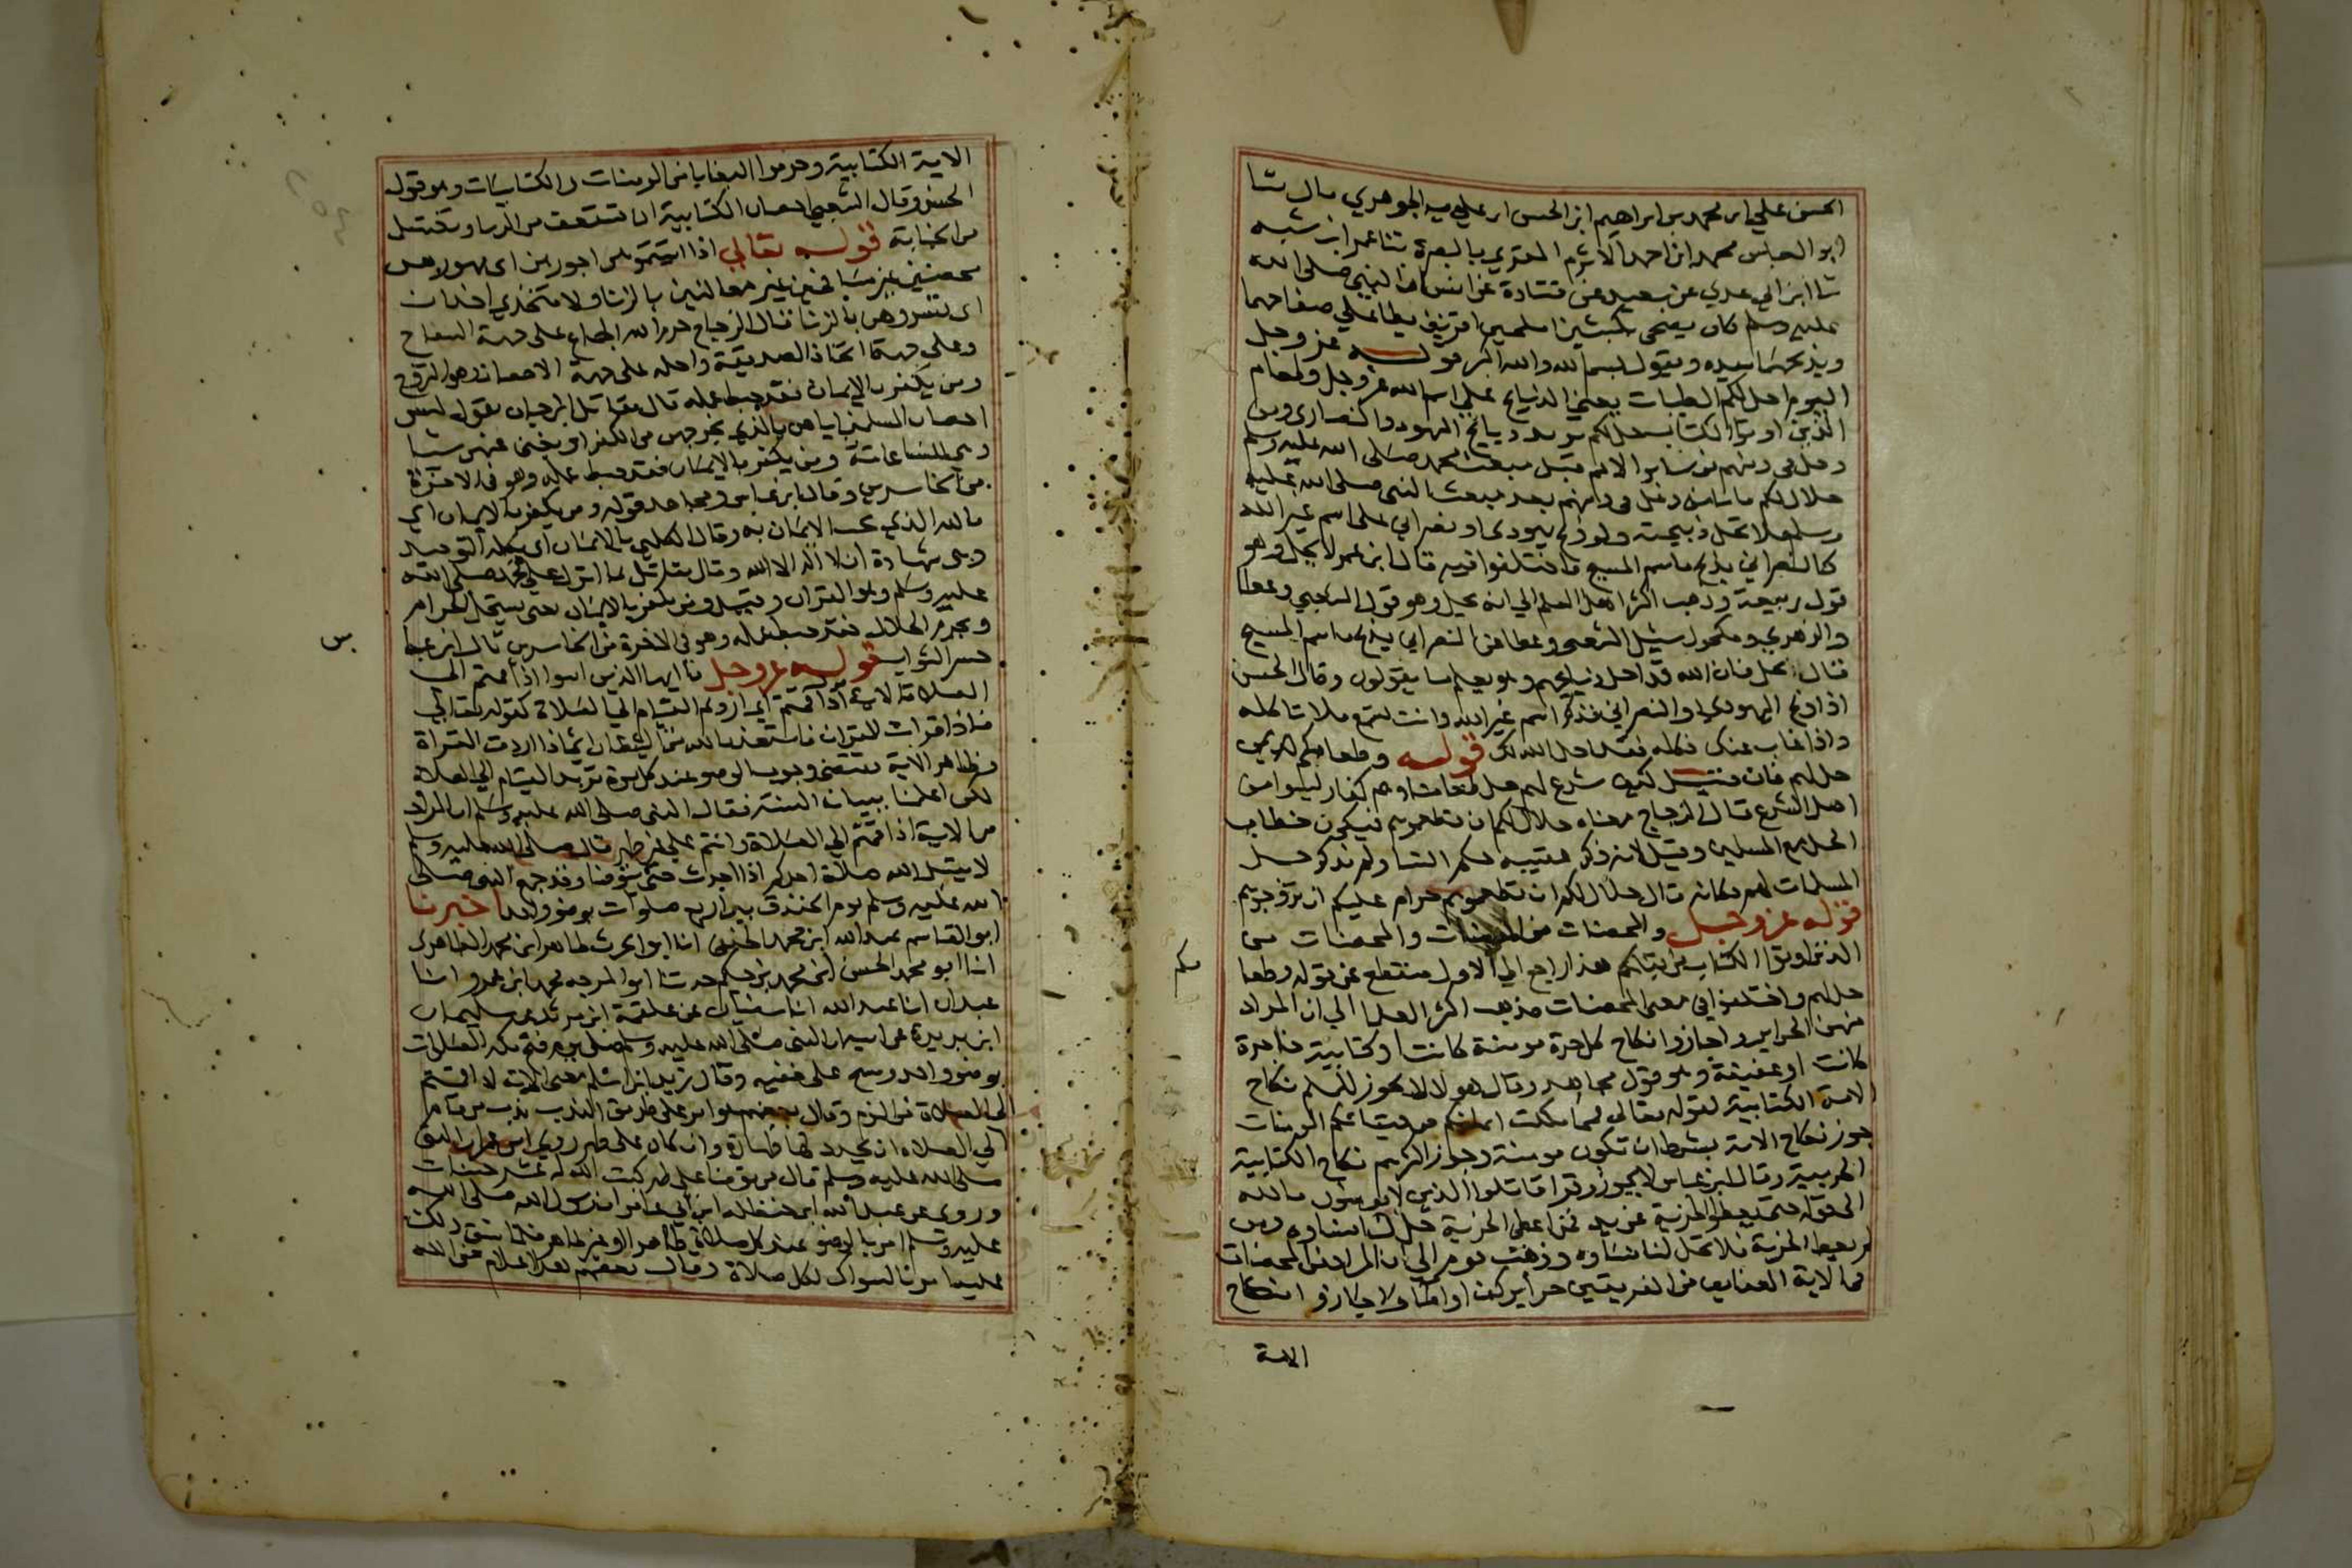 الحسن علي ابن محمد بن ابراهيم ابن الحسن ابن علويه الجوهري قال ثنا
ابو العباس محمد ابن احمد الاثرم المقري بالبصرة ثنا عمر ابن شبه
ثنا ابن ابي عدي عن سعيد عن قتادة عن انس ان النبي صلى الله
عليه وسلم كان يضحى بكبشين املحين اقرنين يطا علي صفاحهما
ويذبحهما بيده ويقول بسم الله والله اكبر قوله عز وجل
اليوم احل لكم الطيبات يعني الذبايح علي اسم الله عز وجل وطعام
الذين اوتوا الكتاب حل لكم يريد ذبايح اليهود والنصارى ومن
دخل في دينهم من ساير الامم قبل مبعث محمد صلى الله عليه وسلم
حلال لكم فاما من دخل في دينهم بعد مبعث النبي صلى الله عليه
وسلم فلا تحل ذبيحته ولو ذبح يهودى او نصراني على اسم غير الله
كالنصراني يذبح باسم المسيح فاختلفوا فيه قال ابن عمر لا يحل وهو
قول ربيعة وذهب اكثر اهل العلم الي انه يحل وهو قول الشعبي وعطا
والزهري ومكحول سئل الشعبي وعطا عن النصراني يذبح باسم المسيح
قال يحل فان الله قد احل ذبايحهم وهو يعلم ما يقولون وقال الحسن
اذا ذبح اليهودي او النصراني فذكر اسم غير الله وانت تسمع فلا تاكله
واذا غاب عنك فكله فقد احل الله لك قوله وطعامكم
حل لهم فان قيل كيف شرع لهم حل طعامنا وهم كفار ليسوا من
اهل الشرع قال الزجاج معناه حلال لكم ان تطعموهم فيكون خطاب
الحل مع المسلمين وقيل لانه ذكر عقيبه حكم النسا ولم يذكر حل
المسلمات لهم فكانه قال حلال لكم ان تطعموهم حرام عليكم ان تزوجوهم
قوله عز وجل والمحصنات من المومنات والمحصنات من
الذين اوتوا الكتاب من قبلكم هذا راجع الي الاول منقطع عن قوله وطعامكم
حل لهم واختلفوا في معنى المحصنات فذهب اكثر العلما الي ان المراد
منهن الحراير واجازوا نكاح كل حرة مومنة كانت او كتابية فاجرة
كانت او عفيفة وهو قول مجاهد وقال هولا لا يجوز للمسلم نكاح
الامة الكتابية لقوله تعالى فمما ملكت ايمانكم من فتياتكم المومنات
جوز نكاح الامة بشرط ان تكون مومنة وجوز اكثرهم نكاح الكتابية
الحربية وقال ابن عباس لا يجوز وقرا قاتلوا الذين لا يومنون بالله
الى قوله حتى يعطوا الجزية عن يد فمن اعطى الجزية حل لنا نساوه ومن
لم يعط الجزية فلا تحل لنا نساوه وذهب قوم الي ان المراد من المحصنات
في الاية العفايف من الفريقين حراير كن او اما ولا يجازوا نكاح
الامة
الامة الكتابية وحرموا البغايا من المومنات والكتابيات وهو قول
الحسن وقال الشعبي احصان الكتابية ان تستعف من الزنا وتغتسل
من الجنابة قوله تعالى اذا اتيتموهن اجورهن اى مهورهن
محصنين غير مسافحين غير معالنين بالزنا ولا متخذي اخدان
اى تسروهن بالزنا قال الزجاج حرم الله الجماع على جهة السفاح
وعلى جهة اتخاذ الصديقة واحله على جهة الاحصان وهو التزوج
ومن يكفر بالايمان فقد حبط عمله قال مقاتل ابن حيان يقول ليس
احصان المسلمين اياهن بالذي يخرجهن من الكفر او يغني عنهن شيا
وهي للناس عامة ومن يكفر بالايمان فقد حبط عمله وهو في الاخرة
من الخاسرين وقال ابن عباس ومجاهد قوله ومن يكفر بالايمان اي
بالله الذي يجب الايمان به وقال الكلبي بالايمان اى بكلمة التوحيد
وهي شهادة ان لا اله الا الله وقال مقاتل بما انزل علي محمد صلى الله
عليه وسلم وهو القران وقيل ومن يكفر بالايمان يعني يستحل الحرام
ويحرم الحلال فقد حبط عمله وهو في الاخرة من الخاسرين قال ابن عباس
خسر الثواب قوله عز وجل يا ايها الذين امنوا اذا قمتم الى
الصلاة الاية اذا قمتم اي اردتم القيام الي الصلاة كقوله تعالي
فاذا قرات القران فاستعذ بالله من الشيطان اي اذا اردت القراة
وظاهر الاية يقتضي وجوب الوضو عند كل مرة يريد القيام الي الصلاة
لكن اعلمنا ببيان السنة فقال النبي صلى الله عليه وسلم ان المراد
من الاية اذا قمتم الي الصلاة وانتم علي غير طهر قال صلى الله عليه وسلم
لا يقبل الله صلاة احدكم اذا احدث حتى يتوضا وقد جمع النبي صلى
الله عليه وسلم يوم الخندق بين اربع صلوات بوضو واحد اخبرنا
ابو القاسم عبد الله ابن محمد الحنفي انا ابو الحرث طاهر ابن محمد الطاهرى
انا ابو محمد الحسن ابن محمد بن حكيم حدثنا ابو الموجه محمد ابن عمرو انا
عبدان انا عبد الله انا سفيان عن علقمة ابن مرثد عن سليمان
ابن بريدة عن ابيه ان النبي صلى الله عليه وسلم صلى يوم فتح مكة الصلوات
بوضو واحد ومسح على خفيه وقال زيد ابن اسلم معنى الاية اذا قمتم
الى الصلاة من النوم وقال بعضهم هو امر على طريق الندب ندب من قام
الي الصلاة ان يجدد لها طهارة وان كان على طهر روى ابن عمر ان النبي
صلى الله عليه وسلم قال من توضا على طهر كتب الله له عشر حسنات
وروي عن عبد الله ابن حنظلة ابن ابي عامر ان رسول الله صلى الله
عليه وسلم امر بالوضو عند كل صلاة طاهرا او غير طاهر فلما شق ذلك
عليه امر بالسواك لكل صلاة وقال بعضهم هذا اعلام من الله